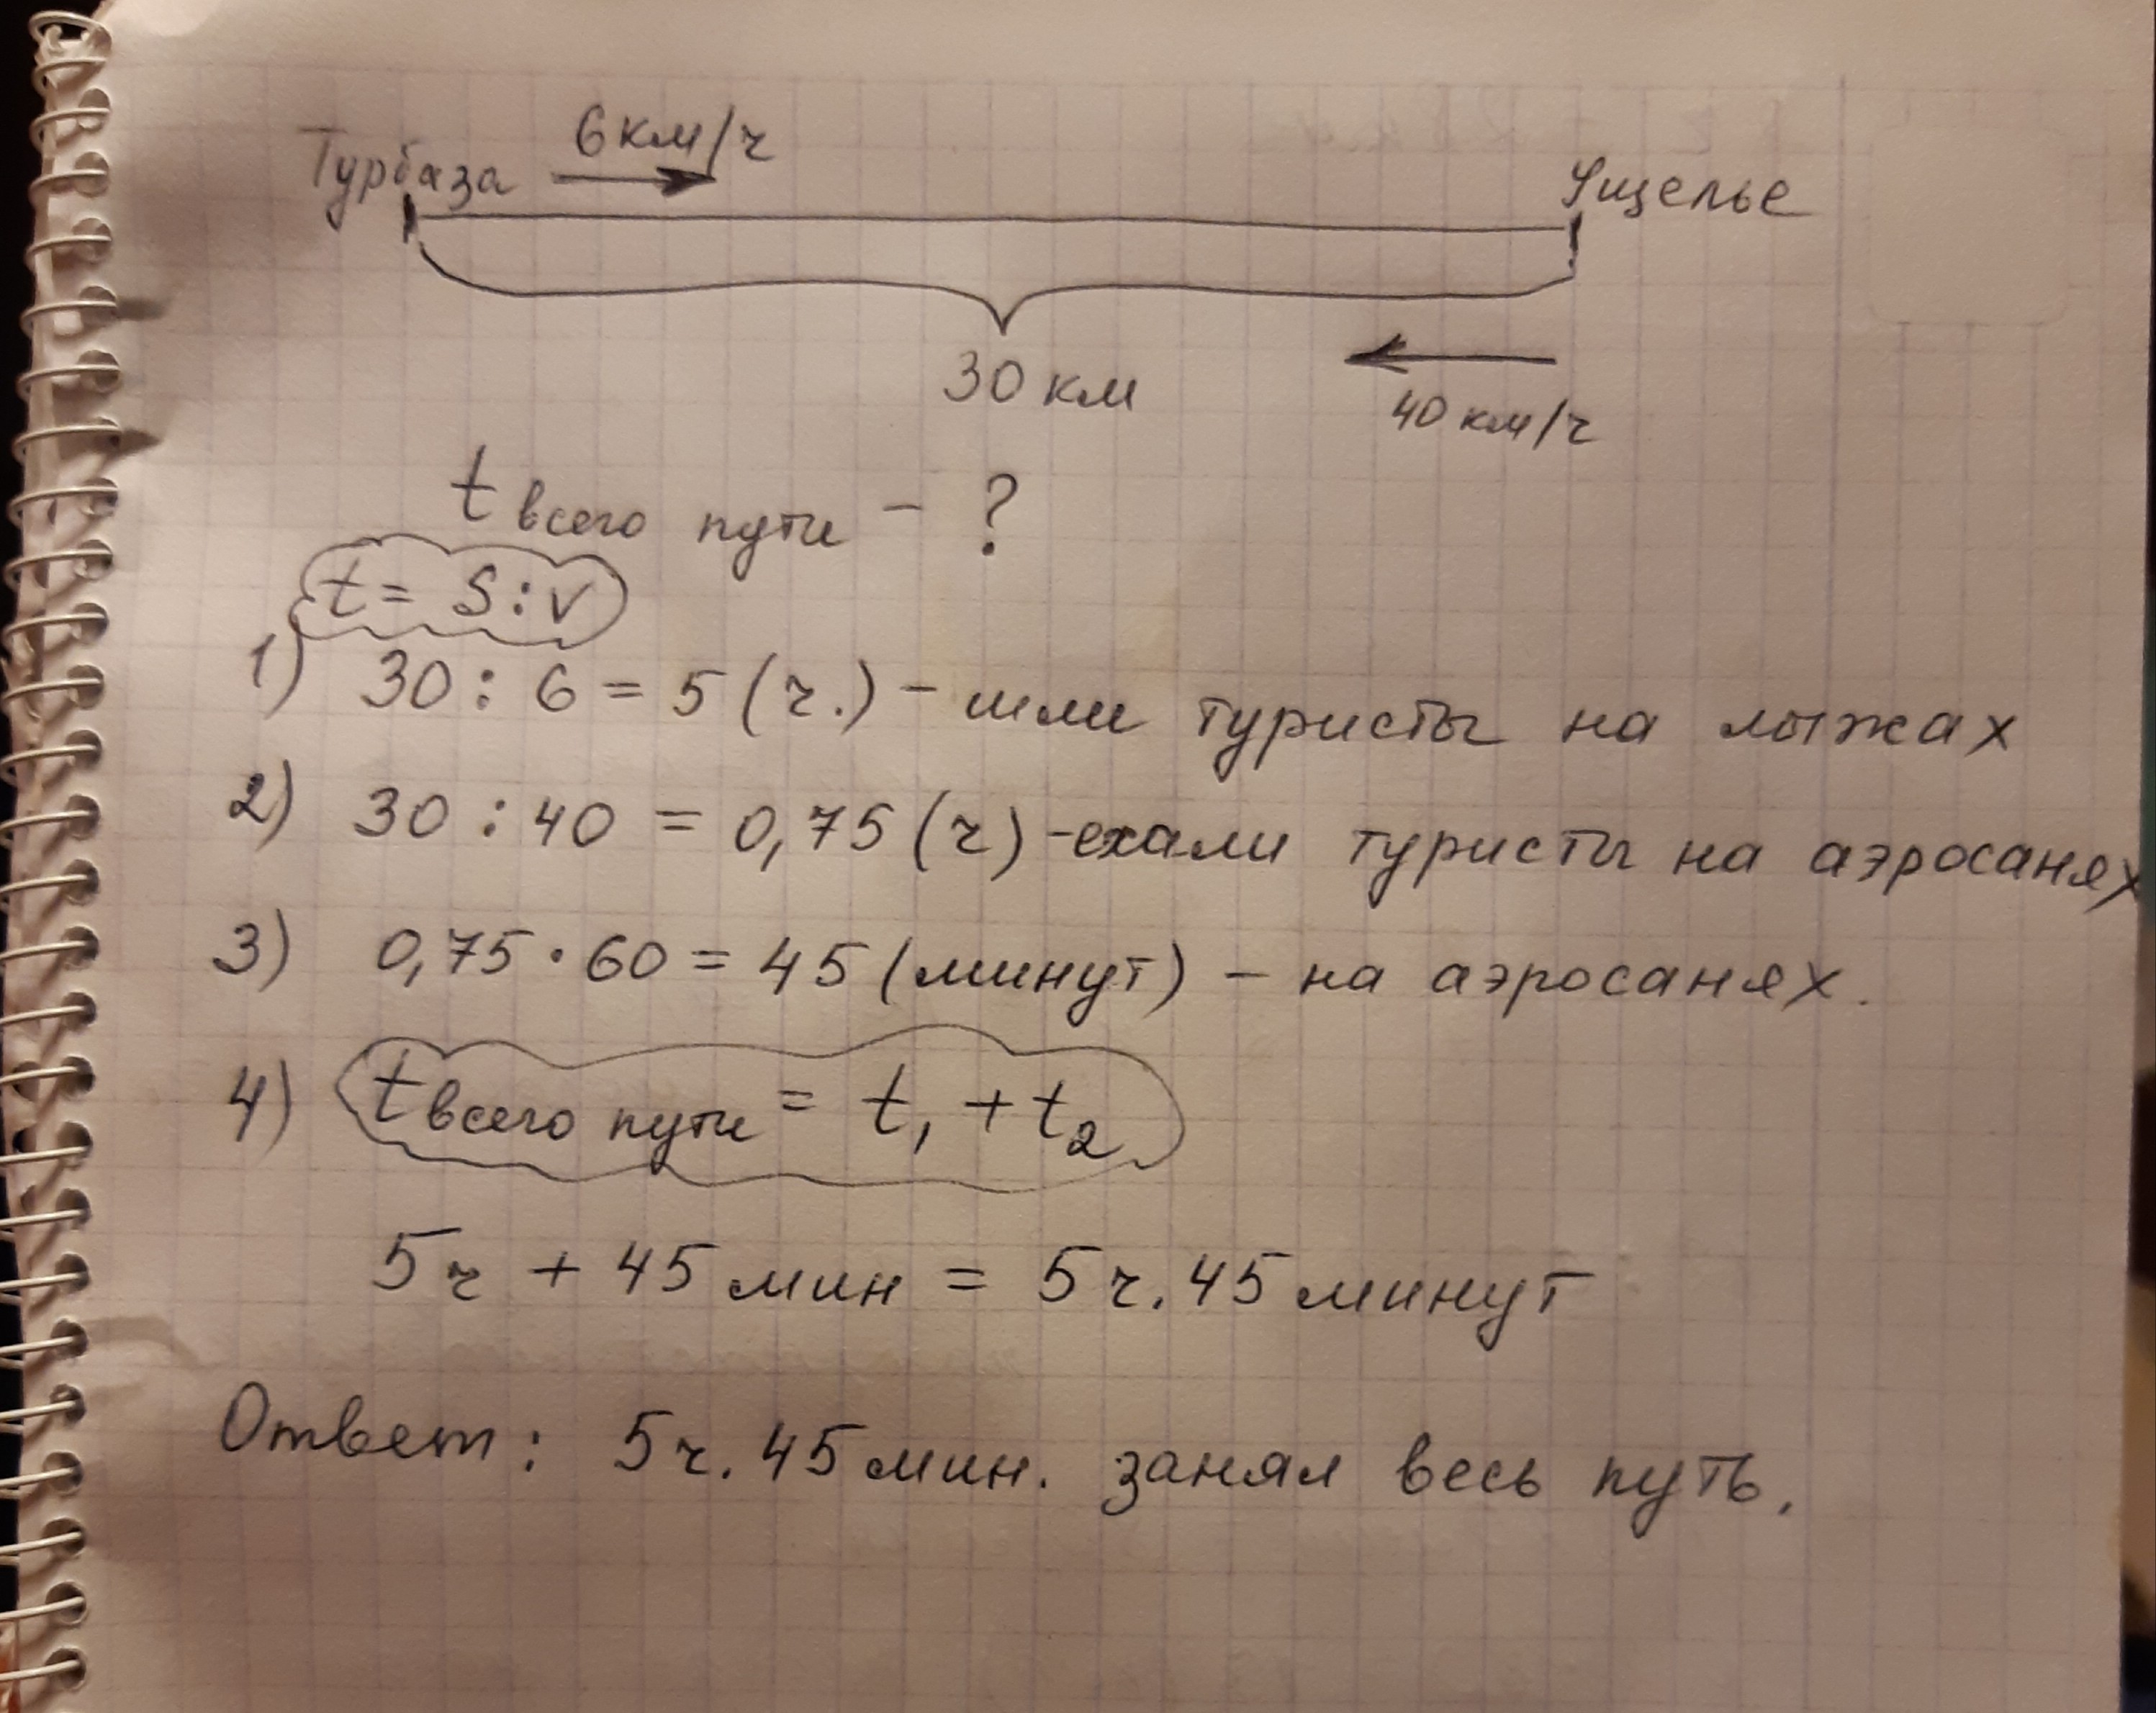 Турбаза 6 км/ч Ущелье
30 км
40 км/ч
t всего пути - ?
t = S : v
1) 30 : 6 = 5 (ч.) - шли туристы на лыжах
2) 30 : 40 = 0,75 (ч) - ехали туристы на аэросанях
3) 0,75 · 60 = 45 (минут) - на аэросанях.
4) t всего пути = t₁ + t₂
5 ч + 45 мин = 5 ч. 45 минут
Ответ: 5 ч. 45 мин. занял весь путь.